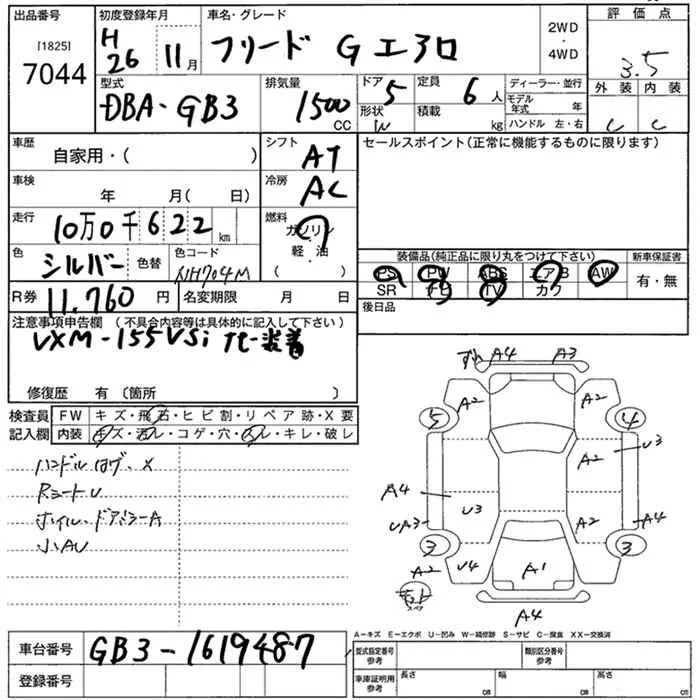 出品番号 初度登録年月 車名・グレード 評価点
[1825] H 26 11月 フリード G エアロ 2WD・4WD 3.5
7044
型式 排気量 ドア 5 定員 6人 ディーラー・並行 外装 内装
DBA-GB3 1500 CC 形状 W 積載 kg モデル年式 年 C C
ハンドル 左・右
車歴 自家用・( ) シフト AT セールスポイント(正常に機能するものに限ります)
車検 年 月( 日) 冷房 AC
走行 10万0千622 km 燃料 ガソリン・軽油 ( )
色 シルバー 色替 色コード NH704M 装備品(純正品に限り丸をつけて下さい) 新車保証書
PS PW ABS エアB AW 有・無
SR ナビ TV カワ
R券 11,760円 名変期限 月 日 後日品
注意事項申告欄 (不具合内容等は具体的に記入して下さい)
VXM-155VSi ナビ装着
修復歴 有 〔箇所 〕
検査員 FW キズ・飛石・ヒビ割・リペア跡・X要
記入欄 内装 キズ・汚レ・コゲ・穴・スレ・キレ・破レ
ハンドル
RシートU
ホイル・ドアミラーA
小AU
A4 A3
A2 A2
5 4
A2 U3
A4 U3
UA3 A2 A4
3 3
A2 U4 A1
スペア
A4
A-キズ E-エクボ U-凹み W-補修跡 S-サビ C-腐食 XX-交換済
車台番号 GB3-1619487 型式指定番号 参考 類別区分番号 参考
登録番号 車庫証明用 参考 長さ cm 幅 cm 高さ cm